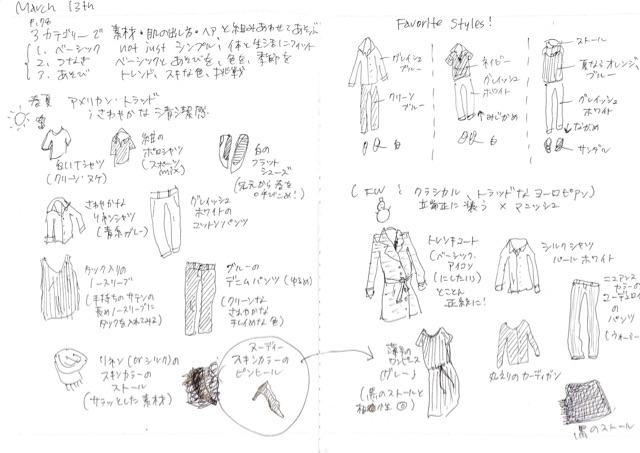 March 13th
P.178
3カテゴリーで 素材・肌の出し方・ヘア、と組みあわせてあそぶ
1. ベーシック not just シンプル; 体と生活にフィット
2. つなぎ ベーシックとあそびを、色を、季節を
3. あそび トレンド、スキな色、挑戦
春夏 アメリカン・トラッド
; さわやかな 清潔感
白いTシャツ
(クリーン・ヌケ)
紺の
ポロシャツ
(スポーツ
mix)
白の
フラット
シューズ
(足元から春を
呼びこめ!)
さわやかな
リネンシャツ
(青系グレー)
グレイッシュ
ホワイトの
コットンパンツ
タック入りの
ノースリーブ
(手持ちのサテンの
長めノースリーブに
タックを入れてみる)
ブルーの
デニムパンツ (ゆるめ)
(クリーンな
さわやかな
キレイめな色)
リネン (orシルク)の
スキンカラーの
ストール
(サラッとした素材)
ヌーディー
スキンカラーの
ピンヒール
Favorite Styles!
グレイッシュ
ブルー
クリーン
ブルー
白
ネイビー
グレイッシュ
ホワイト
みじかめ
白
ストール
夏ならオレンジ、
ブルー
グレイッシュ
ホワイト
ながめ
サンダル
(FW ; クラシカル、トラッドなヨーロピアン)
正統に装う × マニッシュ
トレンチコート
(ベーシック、
アイコン
(にしたい))
とことん
正統に!
シルクシャツ
パールホワイト
ニュアンス
カラーの
コーデュロイの
パンツ
(ウォーミー)
薄手の
ワンピース
(グレー)
(黒のストールと
相性◎)
丸えりのカーディガン
黒のストール